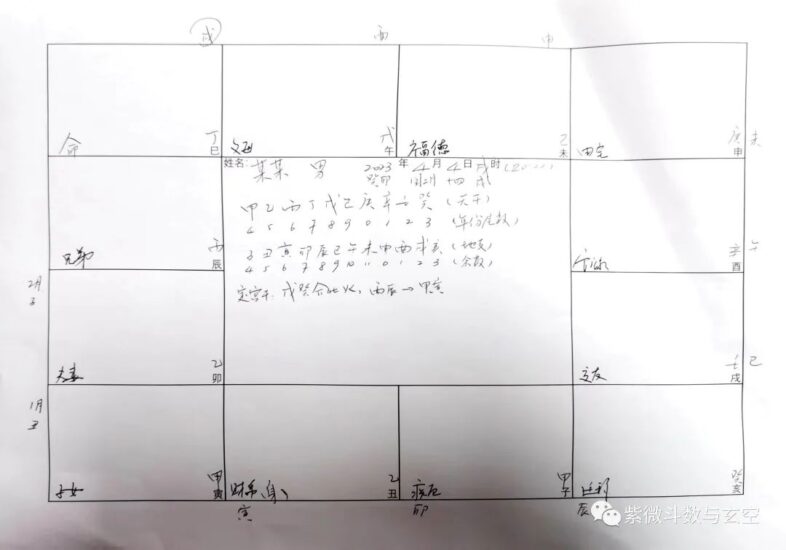 戌 酉 申
命 丁巳
父母 戊午
福德 己未
田宅 庚申 未
姓名: 某某 男 2023年4月4日戌时(20:00)
癸卯 闰2月 十四 戌
甲乙丙丁戊己庚辛壬癸 (天干)
4 5 6 7 8 9 0 1 2 3 (年份尾数)
子丑寅卯辰巳午未申酉戌亥 (地支)
4 5 6 7 8 9 10 11 0 1 2 3 (余数)
定宫干: 戊癸合化火, 丙辰→甲寅
兄弟 丙辰
辛酉 午
2月子
夫妻 乙卯
交友 壬戌 巳
1月丑
子女 甲寅
财帛(身) 乙丑
寅
疾厄 甲子
卯
迁移 癸亥
辰
紫微斗数与玄空